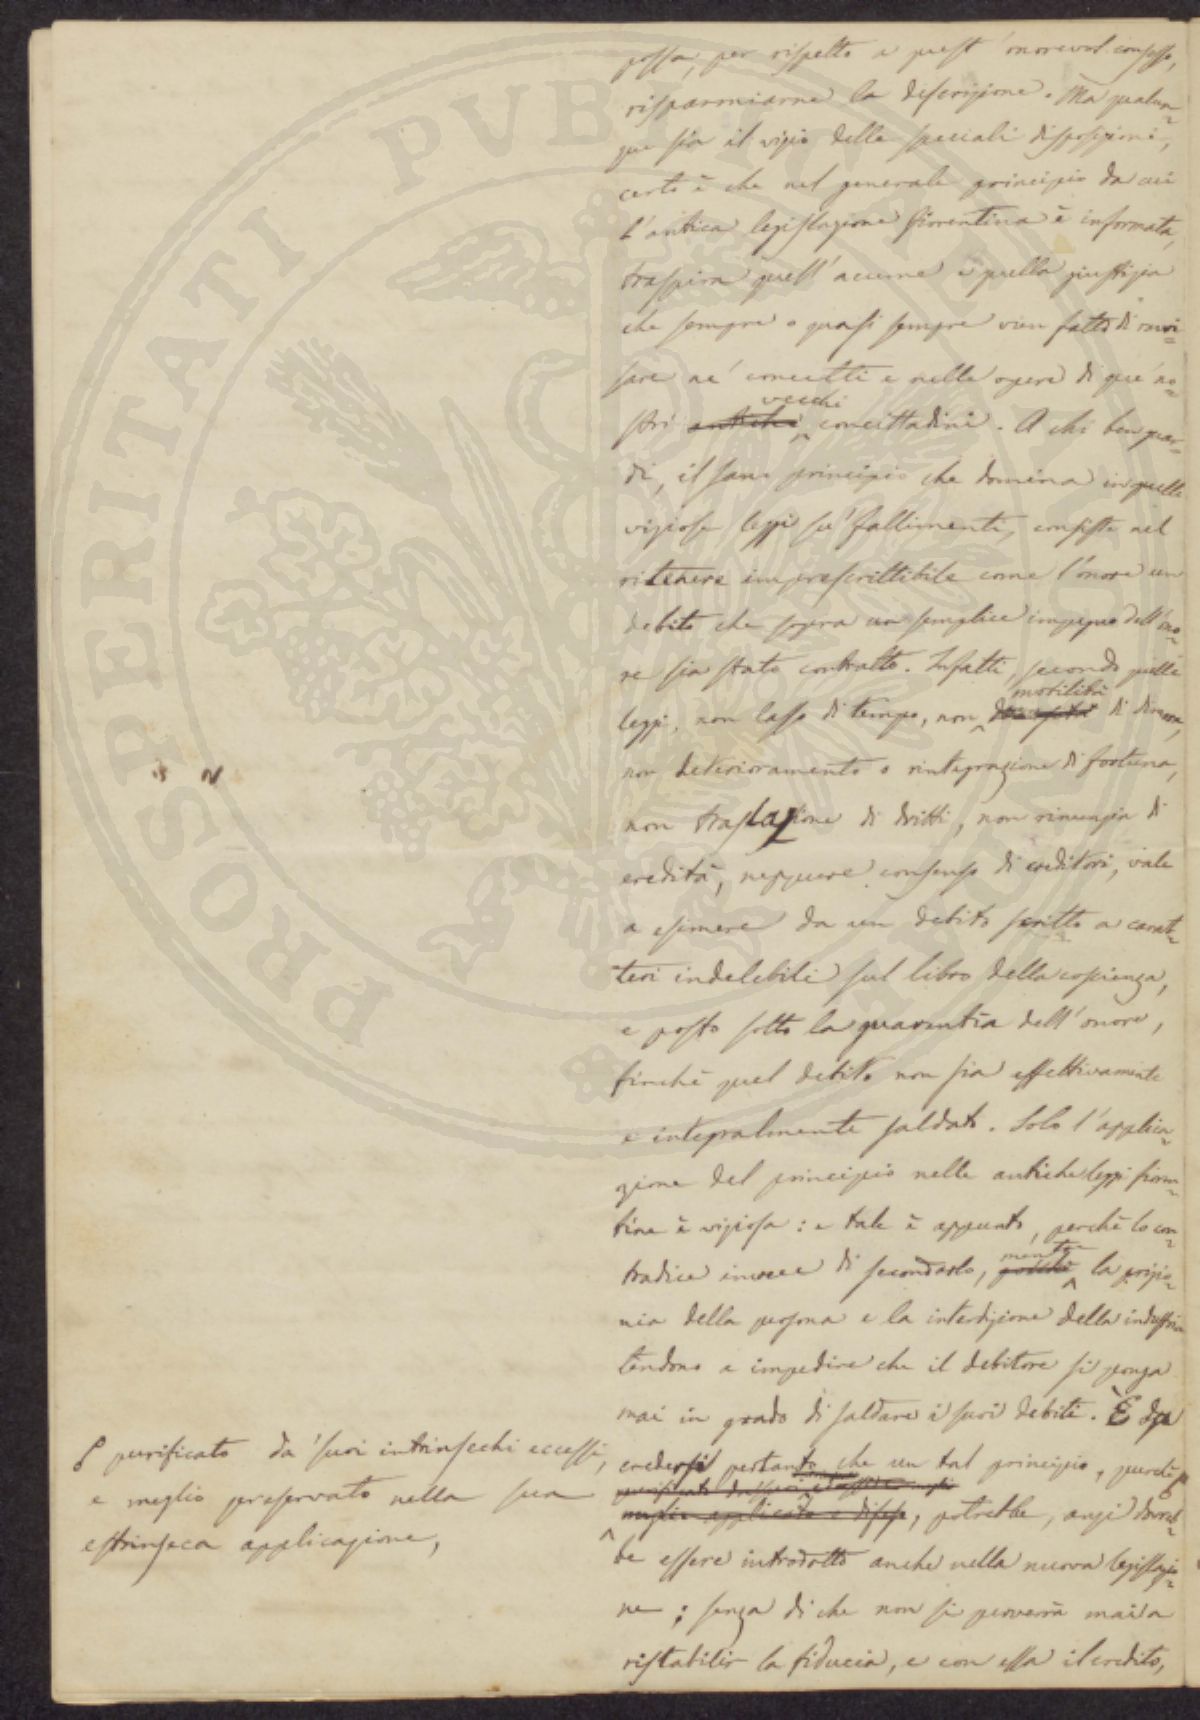 possa, per rispetto a quest'onorevol consesso,
risparmiarne la descrizione. Ma qualun=
que sia il vizio delle speciali disposizioni,
certo è che nel generale principio da cui
l'antica legislazione fiorentina è informata,
traspira quell'acume e quella giustizia
che sempre o quasi sempre vien fatto di ravvi=
sare ne' concetti e nelle opere di que' no=
vecchi
stri antichi concittadini. A chi ben guar=
di, il sano principio che domina in quelle
viziose leggi su' fallimenti, consiste nel
ritenere imprescrittibile come l'onore un
debito che sopra un semplice impegno dell'ono=
re sia stato contratto. Infatti, secondo quelle
mobilità
leggi, non lasso di tempo, non di dimora,
non deterioramento o rintegrazione di fortuna,
non traslazione di dritti, non rinunzia di
eredità, neppure consenso di creditori, vale
a esimere da un debito scritto a carat=
teri indelebili sul libro della coscienza,
e posto sotto la guarentia dell'onore,
finchè quel debito non sia effettivamente
e integralmente saldato. Solo l'applica=
zione del principio nelle antiche leggi fioren=
tine è viziosa: e tale è appunto, perchè lo con=
tradice invece di secondarlo, mentre
poichè la prigio=
nia della persona e la interdizione della industria
tendono a impedire che il debitore si ponga
mai in grado di saldare i suoi debiti. È da
credersi pertanto che un tal principio, purchè
purificato da' suoi intrinsechi eccessi,
e meglio preservato nella sua
estrinseca applicazione,
meglio applicato e difeso, potrebbe, anzi dovreb=
be essere introdotto anche nella nuova legislazio=
ne; senza di che non si perverrà mai a
ristabilir la fiducia, e con essa il credito,
PROSPERITATI PVBLICAE